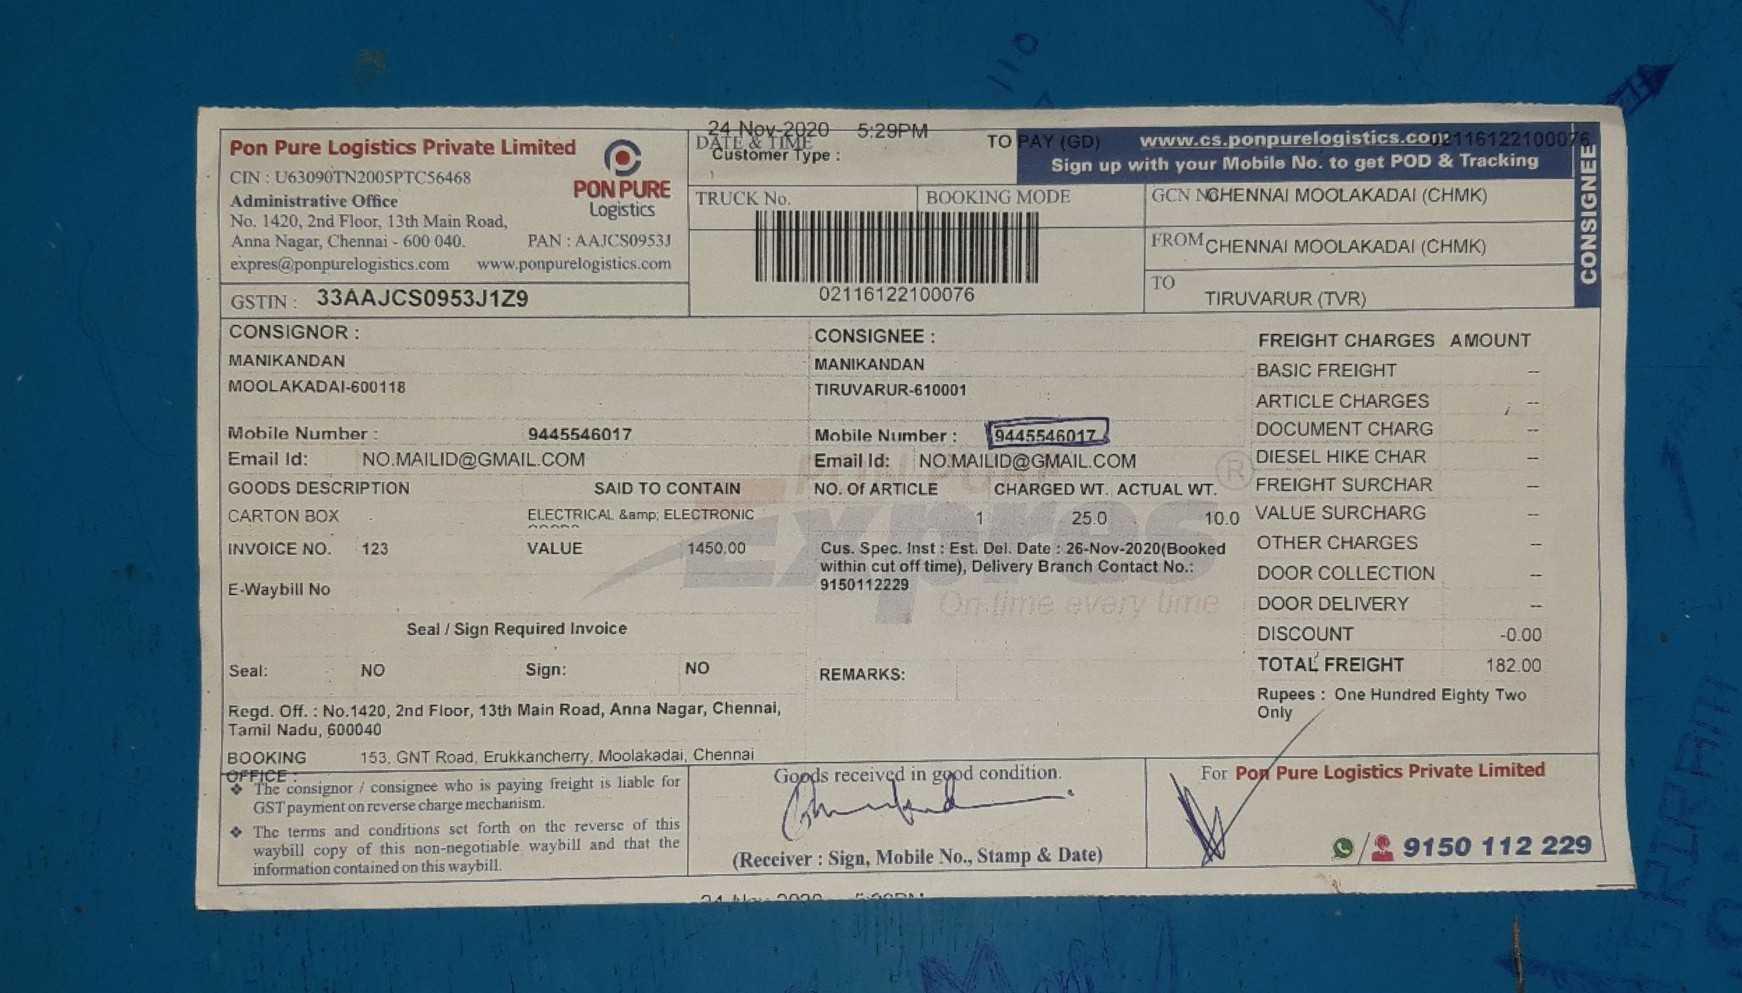 Pon Pure Logistics Private Limited
CIN : U63090TN2005PTC56468
Administrative Office
No. 1420, 2nd Floor, 13th Main Road,
Anna Nagar, Chennai - 600 040. PAN : AAJCS0953J
expres@ponpurelogistics.com www.ponpurelogistics.com
PON PURE
Logistics
GSTIN : 33AAJCS0953J1Z9
24-Nov-2020 5:29PM
DATE & TIME
Customer Type :
TO PAY (GD)
www.cs.ponpurelogistics.com
02116122100076
Sign up with your Mobile No. to get POD & Tracking
CONSIGNEE
TRUCK No. BOOKING MODE
02116122100076
GCN N CHENNAI MOOLAKADAI (CHMK)
FROM CHENNAI MOOLAKADAI (CHMK)
TO
TIRUVARUR (TVR)
CONSIGNOR :
MANIKANDAN
MOOLAKADAI-600118
Mobile Number : 9445546017
Email Id: NO.MAILID@GMAIL.COM
GOODS DESCRIPTION SAID TO CONTAIN
CARTON BOX ELECTRICAL &amp; ELECTRONIC
INVOICE NO. 123 VALUE 1450.00
E-Waybill No
Seal / Sign Required Invoice
Seal: NO Sign: NO
Regd. Off. : No.1420, 2nd Floor, 13th Main Road, Anna Nagar, Chennai,
Tamil Nadu, 600040
BOOKING 153, GNT Road, Erukkancherry, Moolakadai, Chennai
OFFICE :
CONSIGNEE :
MANIKANDAN
TIRUVARUR-610001
Mobile Number : 9445546017
Email Id: NO.MAILID@GMAIL.COM
NO. Of ARTICLE CHARGED WT. ACTUAL WT.
1 25.0 10.0
Cus. Spec. Inst : Est. Del. Date : 26-Nov-2020(Booked
within cut off time), Delivery Branch Contact No.:
9150112229
PON PURE
Expres
®
On-time every time
REMARKS:
FREIGHT CHARGES AMOUNT
BASIC FREIGHT --
ARTICLE CHARGES --
DOCUMENT CHARG --
DIESEL HIKE CHAR --
FREIGHT SURCHAR --
VALUE SURCHARG --
OTHER CHARGES --
DOOR COLLECTION --
DOOR DELIVERY --
DISCOUNT -0.00
TOTAL FREIGHT 182.00
Rupees : One Hundred Eighty Two
Only
❖ The consignor / consignee who is paying freight is liable for
GST payment on reverse charge mechanism.
❖ The terms and conditions set forth on the reverse of this
waybill copy of this non-negotiable waybill and that the
information contained on this waybill.
Goods received in good condition.
(Receiver : Sign, Mobile No., Stamp & Date)
For Pon Pure Logistics Private Limited
9150 112 229
110